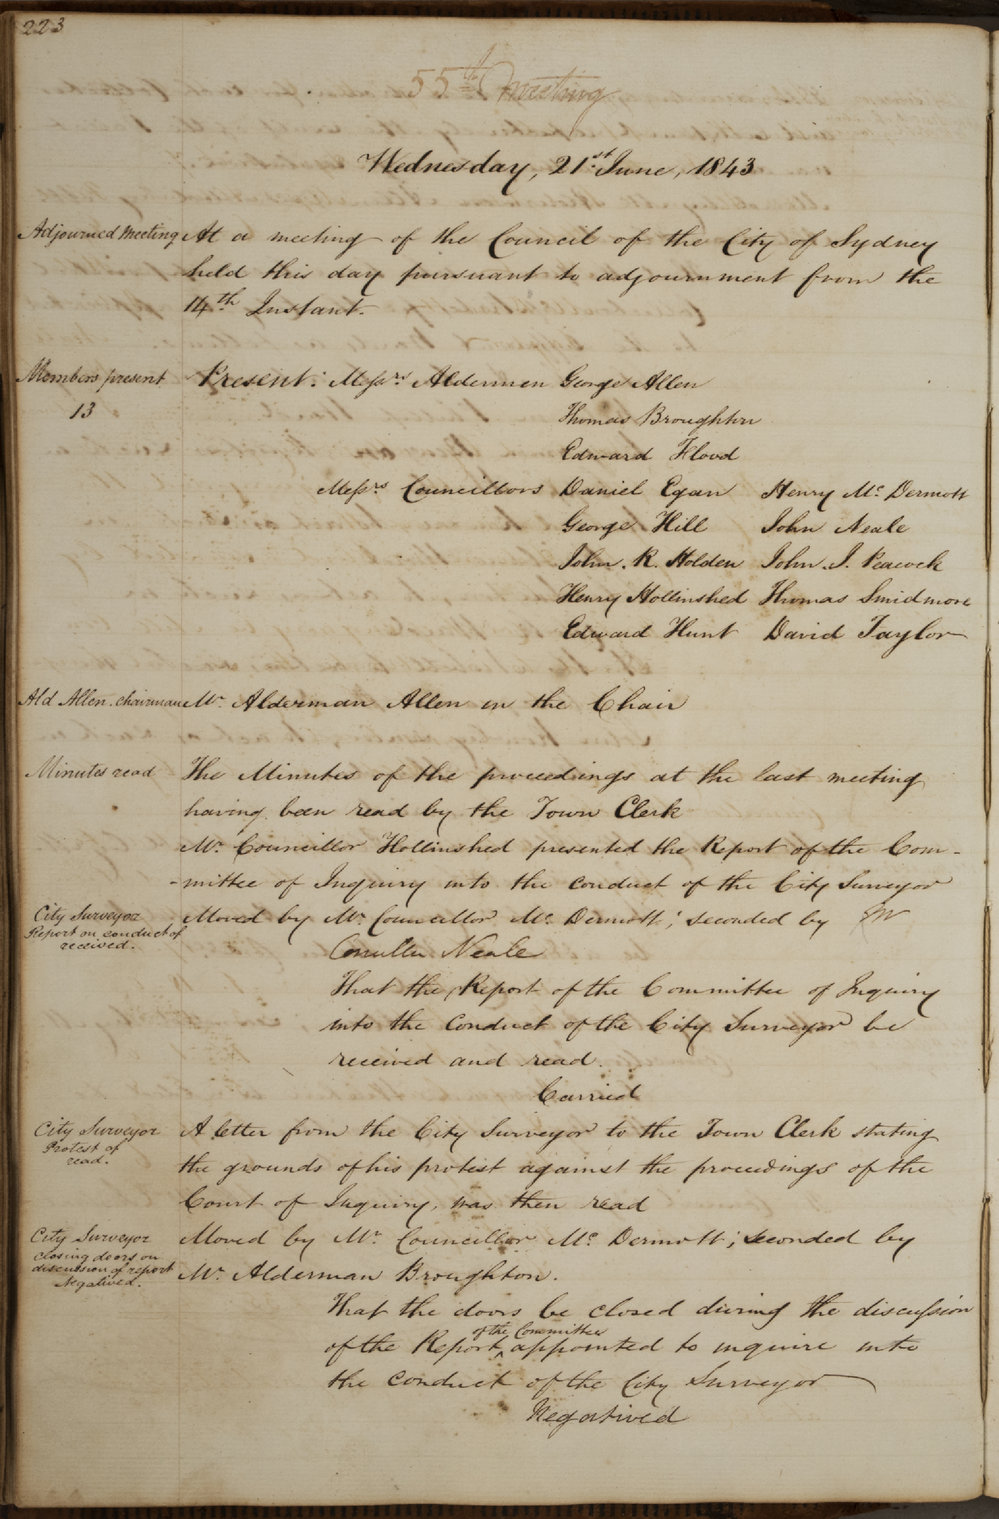 223
55th Meeting
Wednesday, 21st June, 1843
Adjourned Meeting
At a meeting of the Council of the City of Sydney
held this day pursuant to adjournment from the
14th Instant.
Members present
13
Present: Messrs Aldermen George Allen
Thomas Broughton
Edward Flood
Messrs Councillors Daniel Egan Henry Mc Dermott
George Hill John Neale
John. R. Holden John. J. Peacock
Henry Hollinshed Thomas Smidmore
Edward Hunt David Taylor
Ald Allen. chairman
Mr. Alderman Allen in the Chair
Minutes read
The Minutes of the proceedings at the last meeting
having been read by the Town Clerk
Mr. Councillor Hollinshed presented the Report of the Com-
-mittee of Inquiry into the conduct of the City Surveyor
City Surveyor
Report on conduct of
received.
Moved by Mr Councillor Mc. Dermott; seconded by Mr
Neale
That the Report of the Committee of Inquiry
into the Conduct of the City Surveyor be
received and read.
Carried
City Surveyor
Protest of
read.
A letter from the City Surveyor to the Town Clerk stating
the grounds of his protest against the proceedings of the
Court of Inquiry, was then read
City Surveyor
closing doors on
discussion of report
Negatived.
Moved by Mr. Councillor Mc. Dermott; seconded by
Mr. Alderman Broughton.
That the doors be closed during the discussion
of the Report of the Committee appointed to inquire into
the conduct of the City Surveyor
Negatived